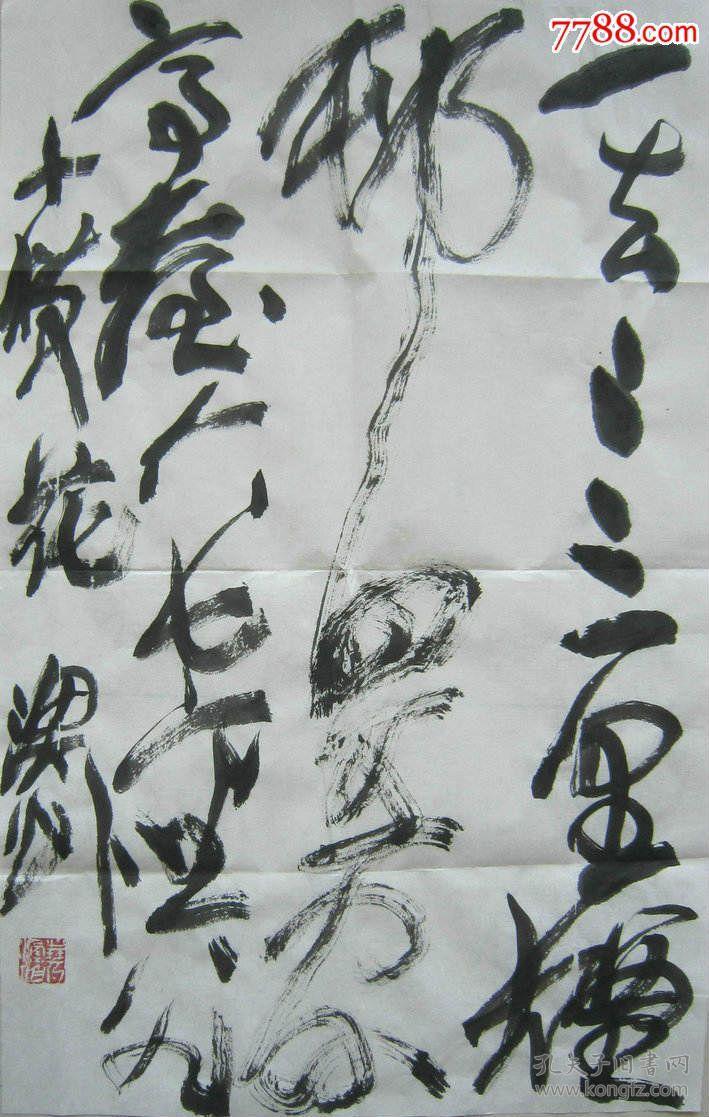 7788.com
一去二三里煙
村四五家
亭臺六七座八九
十花
孔夫子旧书网
www.kongfz.com